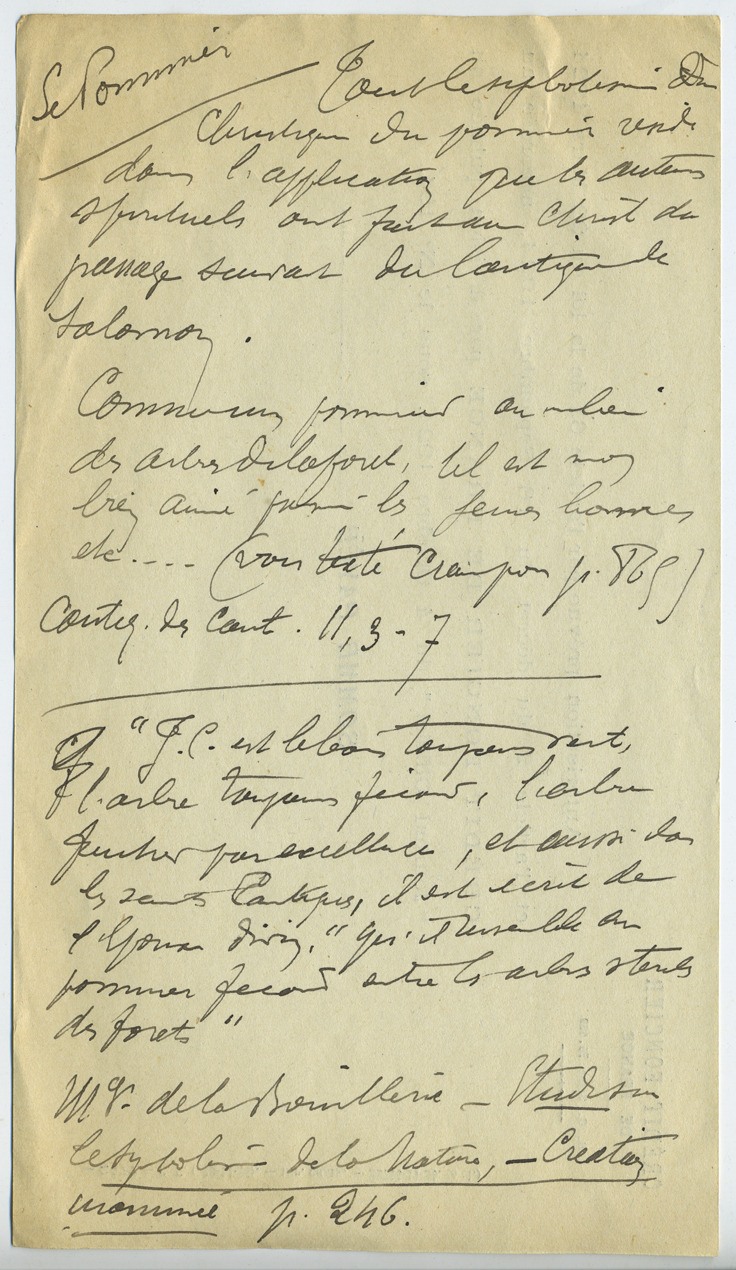 Le Pommier
Tout le symbolisme
Christique du pommier réside
dans l'application que les auteurs
spirituels ont fait au Christ du
passage suivant du Cantique de
Salomon.
Comme un pommier au milieu
des arbres de la forêt, tel est mon
bien aimé parmi les jeunes hommes
etc.... (voir texte Crampon p. )
Cantiq. des Cant. II, 3-7
"J.C. est le bois toujours vert,
l'arbre toujours fécond, l'arbre
fruitier par excellence, et aussi dans
les saints Cantiques, il est écrit de
l'Epoux divin, "qu'il ressemble au
pommier fécond entre les arbres stériles
des forêts"
Mgr. de la Bouillerie - Etude sur
le symbolisme de la Nature, - Création
inanimée p. 246.